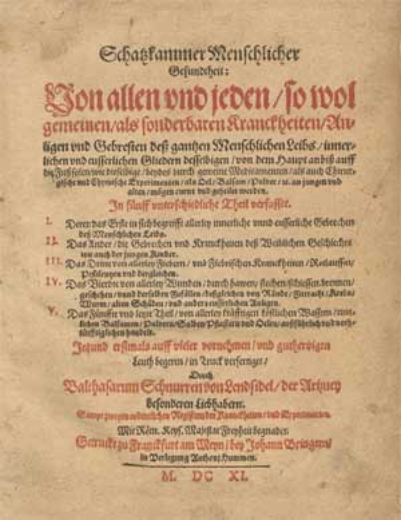 Schatzkammer Menschlicher
Gesundtheit:
Von allen vnd jeden/so wol
gemeinen/als sonderbaren Kranckheiten/An-
ligen vnd Gebresten deß gantzen Menschlichen Leibs/inner-
lichen vnd eusserlichen Gliedern desselbigen/von dem Haupt an biß auff
die Fußsolen/wie dieselbige/beydes durch gemeine Medicamenten/als auch Chirur-
gische vnd Chymische Experimenten/als Oel/Balsam/Puluer/rc. an jungen vnd
alten/mögen curirt vnd geheilet werden.
In fünff vnterschiedliche Theil verfasset.
I. Deren das Erste in sich begreifft allerley innerliche vnnd eusserliche Gebrechen
deß Menschlichen Leibs.
II. Das Ander/die Gebrechen vnd Kranckheiten deß Weiblichen Geschlechts
wie auch der jungen Kinder.
III. Das Dritte von allerley Fiebern/vnd Fiebrischen Kranckheiten/
Pestilentzen vnd dergleichen.
IV. Das Vierdte von allerley Wunden/durch hawen/stechen/schiessen
geschehen/vnnd derselben Zufällen/deßgleichen von
Wurm/alten Schäden/vnd andern eusserlichen Anligen.
V. Das Fünffte vnd letzte Theil/von allerley kräfftigen köstlichen Wassern/
Balsamen/Puluern/Salben/Pflastern vnd Oelen/
handelt.
Jetzund erstmals auff vieler vornehmen/vnd guthertzigen
Leuth begeren/in Truck verfertiget/
Durch
Balthasarum Schnurren von Lendsidel/der Artzney
besonderen Liebhabern.
Sampt zweyen ordentlichen Registern der Kranckheiten/vnd Experimenten.
Mit Röm. Keys. Majestat Freyheit begnadet.
Getruckt zu Franckfurt am Meyn/bey Johann Bringern/
in Verlegung Anthonj Hummen.
M. DC XI.